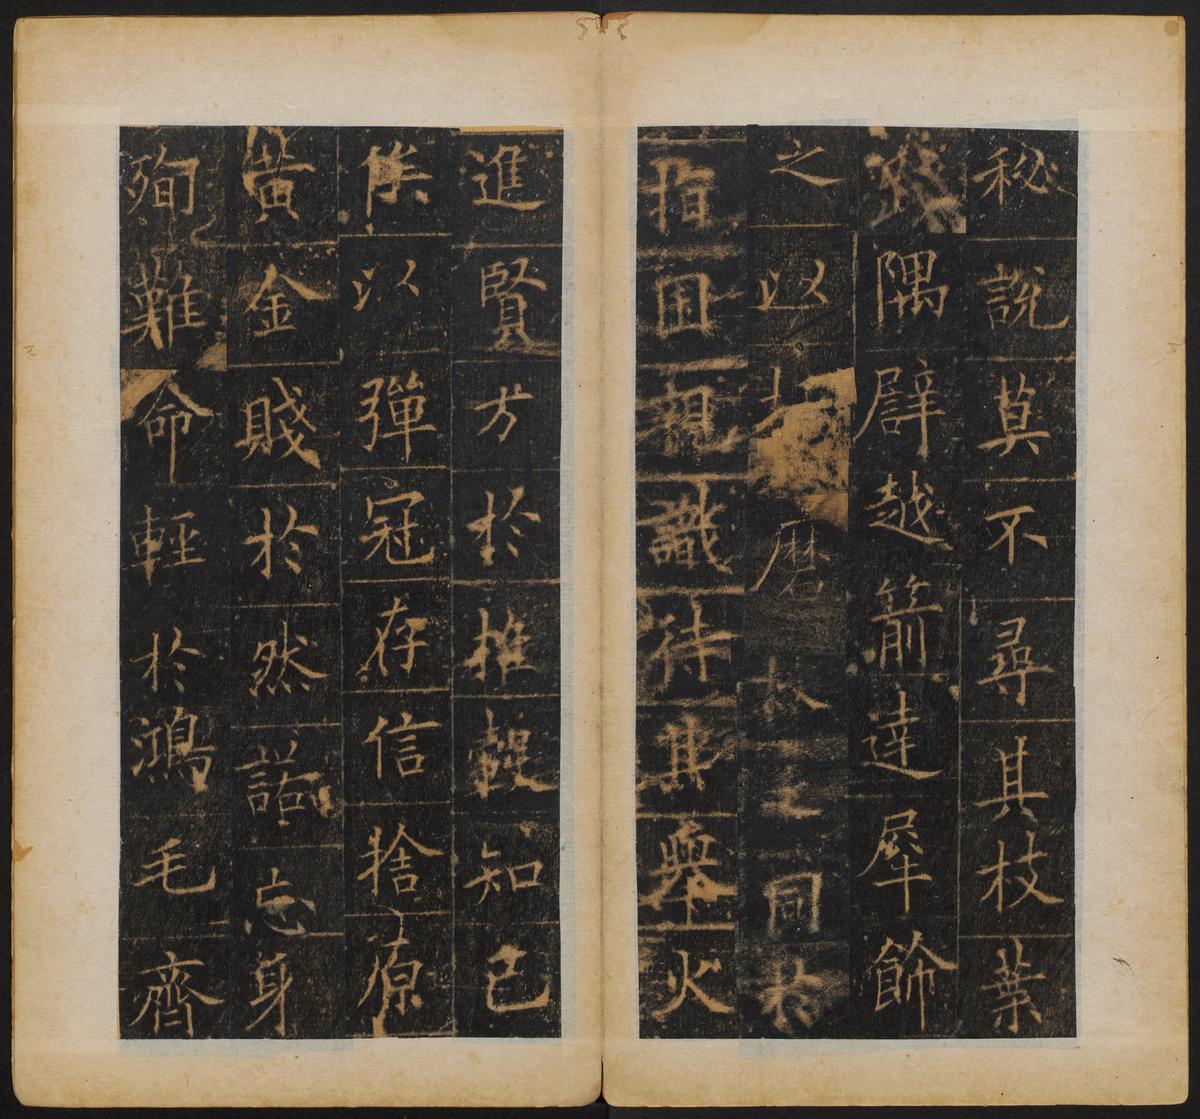 秘說莫不尋其枝葉
踐隅辟越箭達犀飾
之以磨救乏同於
指囷親識待其舉火
進賢方於推轂知己
俟以彈冠存信捨原
黃金賤於然諾忘身
殉難命輕於鴻毛齊